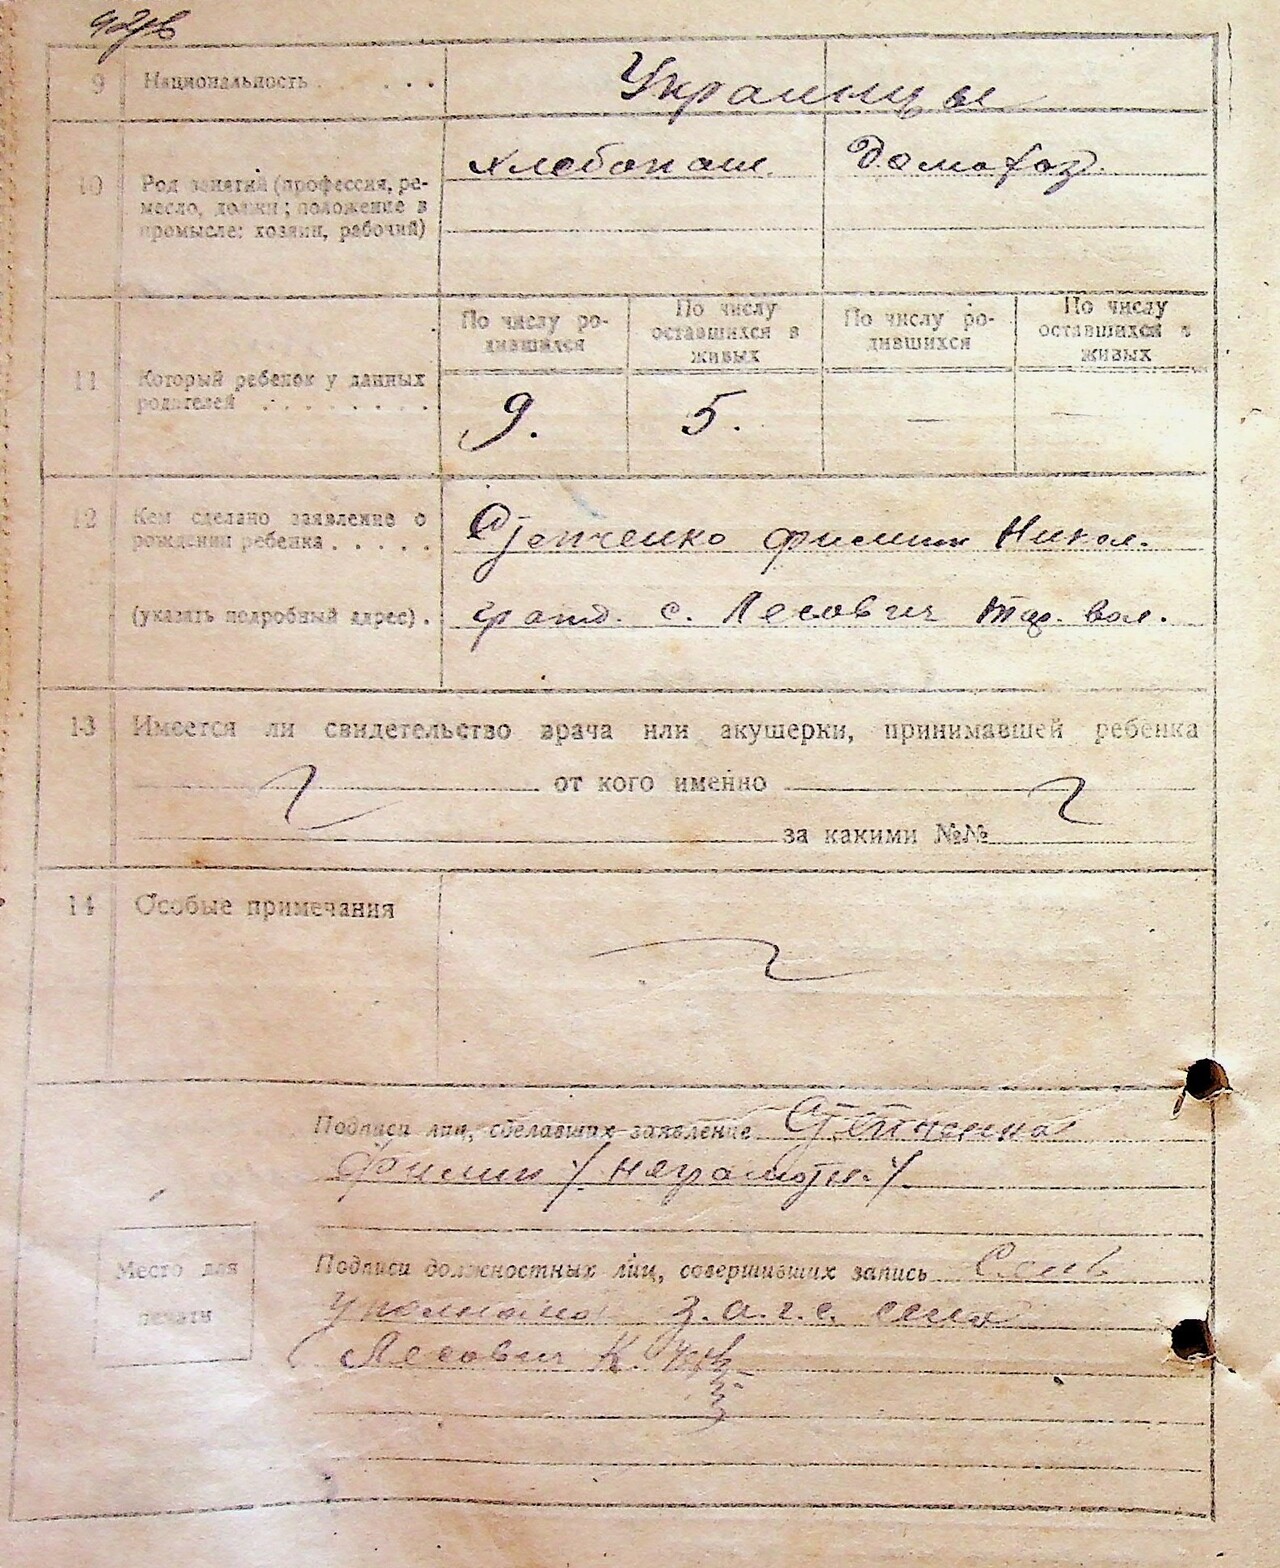 9 Национальность . . . . Украинцы
10 Род занятий (профессия, ре-
месло, должн; положение в
промысле: хозяин, рабочий)
Хлебопаш. Домохоз.
11 Который ребенок у данных
родителей . . . . . . . .
По числу ро-
дившихся
По числу
оставшихся в
живых
По числу ро-
дившихся
По числу
оставшихся в
живых
9. 5. — —
12 Кем сделано заявление о
рождении ребенка . . . . .
Степченко Филипп Никол.
(указать подробный адрес) . гражд. с. Лесович Тар. вол.
13 Имеется ли свидетельство врача или акушерки, принимавшей ребенка
от кого именно
за какими №№
14 Особые примечания
Подписи лиц, сделавших заявление
Филип / неграмотн. /
Место для
печати
Подписи должностных лиц, совершивших запись
з.а.г.с. села
Лесович К.